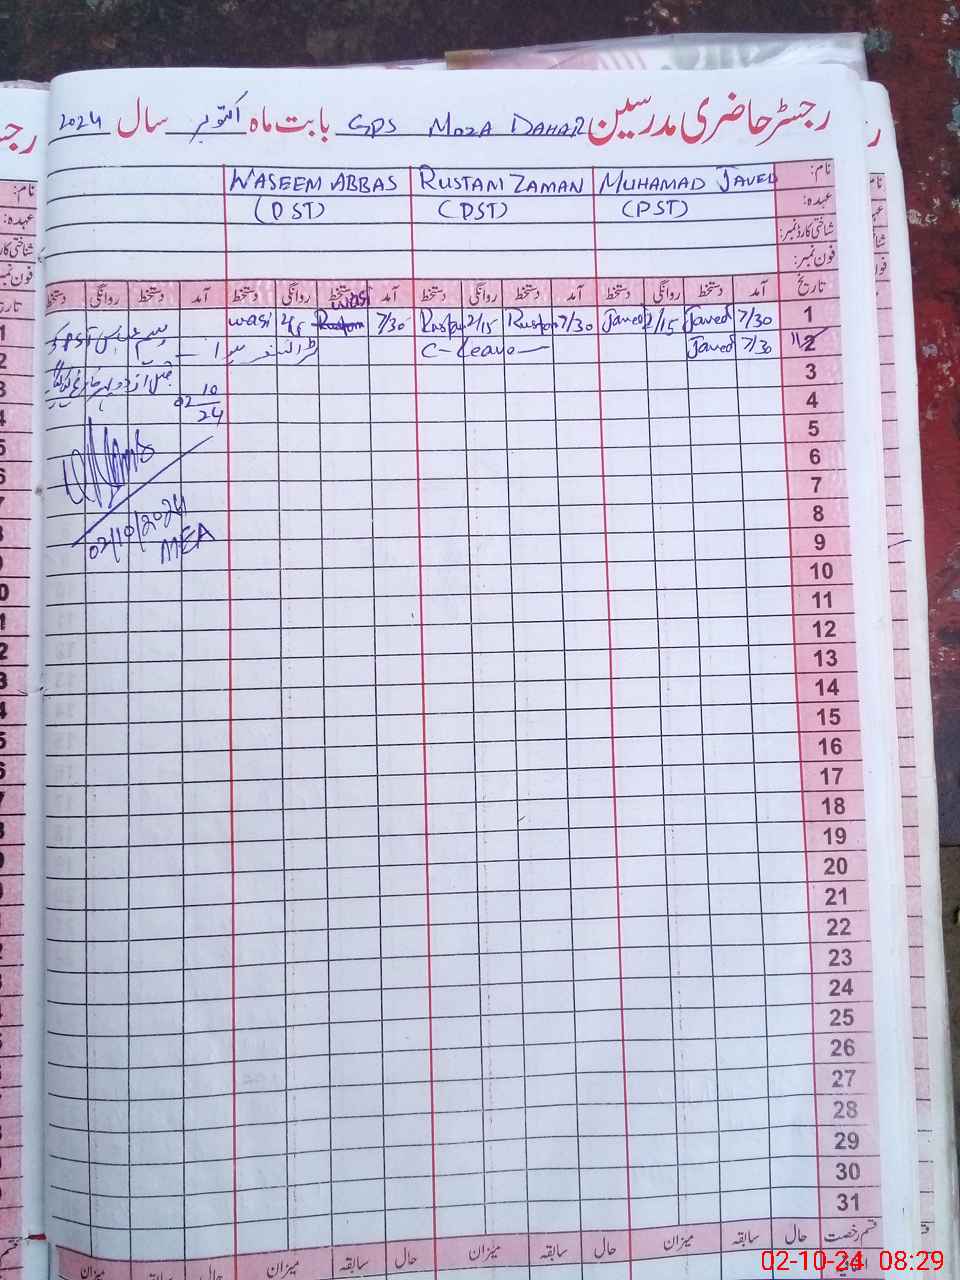 رجسٹر حاضری مدرسین GPS MOZA DAHAR بابت ماہ اکتوبر سال 2024
نام: MUHAMAD JAVED RUSTAM ZAMAN WASEEM ABBAS
عہدہ: (PST) (PST) (PST)
شناختی کارڈ نمبر:
فون نمبر:
تاریخ آمد دستخط روانگی دستخط آمد دستخط روانگی دستخط آمد دستخط روانگی دستخط آمد دستخط روانگی دستخط
1 7/30 Javed 2/15 Javed 7/30 Rustam 2/15 Rustam 7/30 wasi wasi
2 7/30 Javed C-Leave
3
02 10/24
4
5
6
7
8
02/10/2024
9
MEA
10
11
12
13
14
15
16
17
18
19
20
21
22
23
24
25
26
27
28
29
30
31
قسم رخصت حال سابقہ میزان حال سابقہ میزان حال سابقہ میزان حال سابقہ میزان
02-10-24 08:29